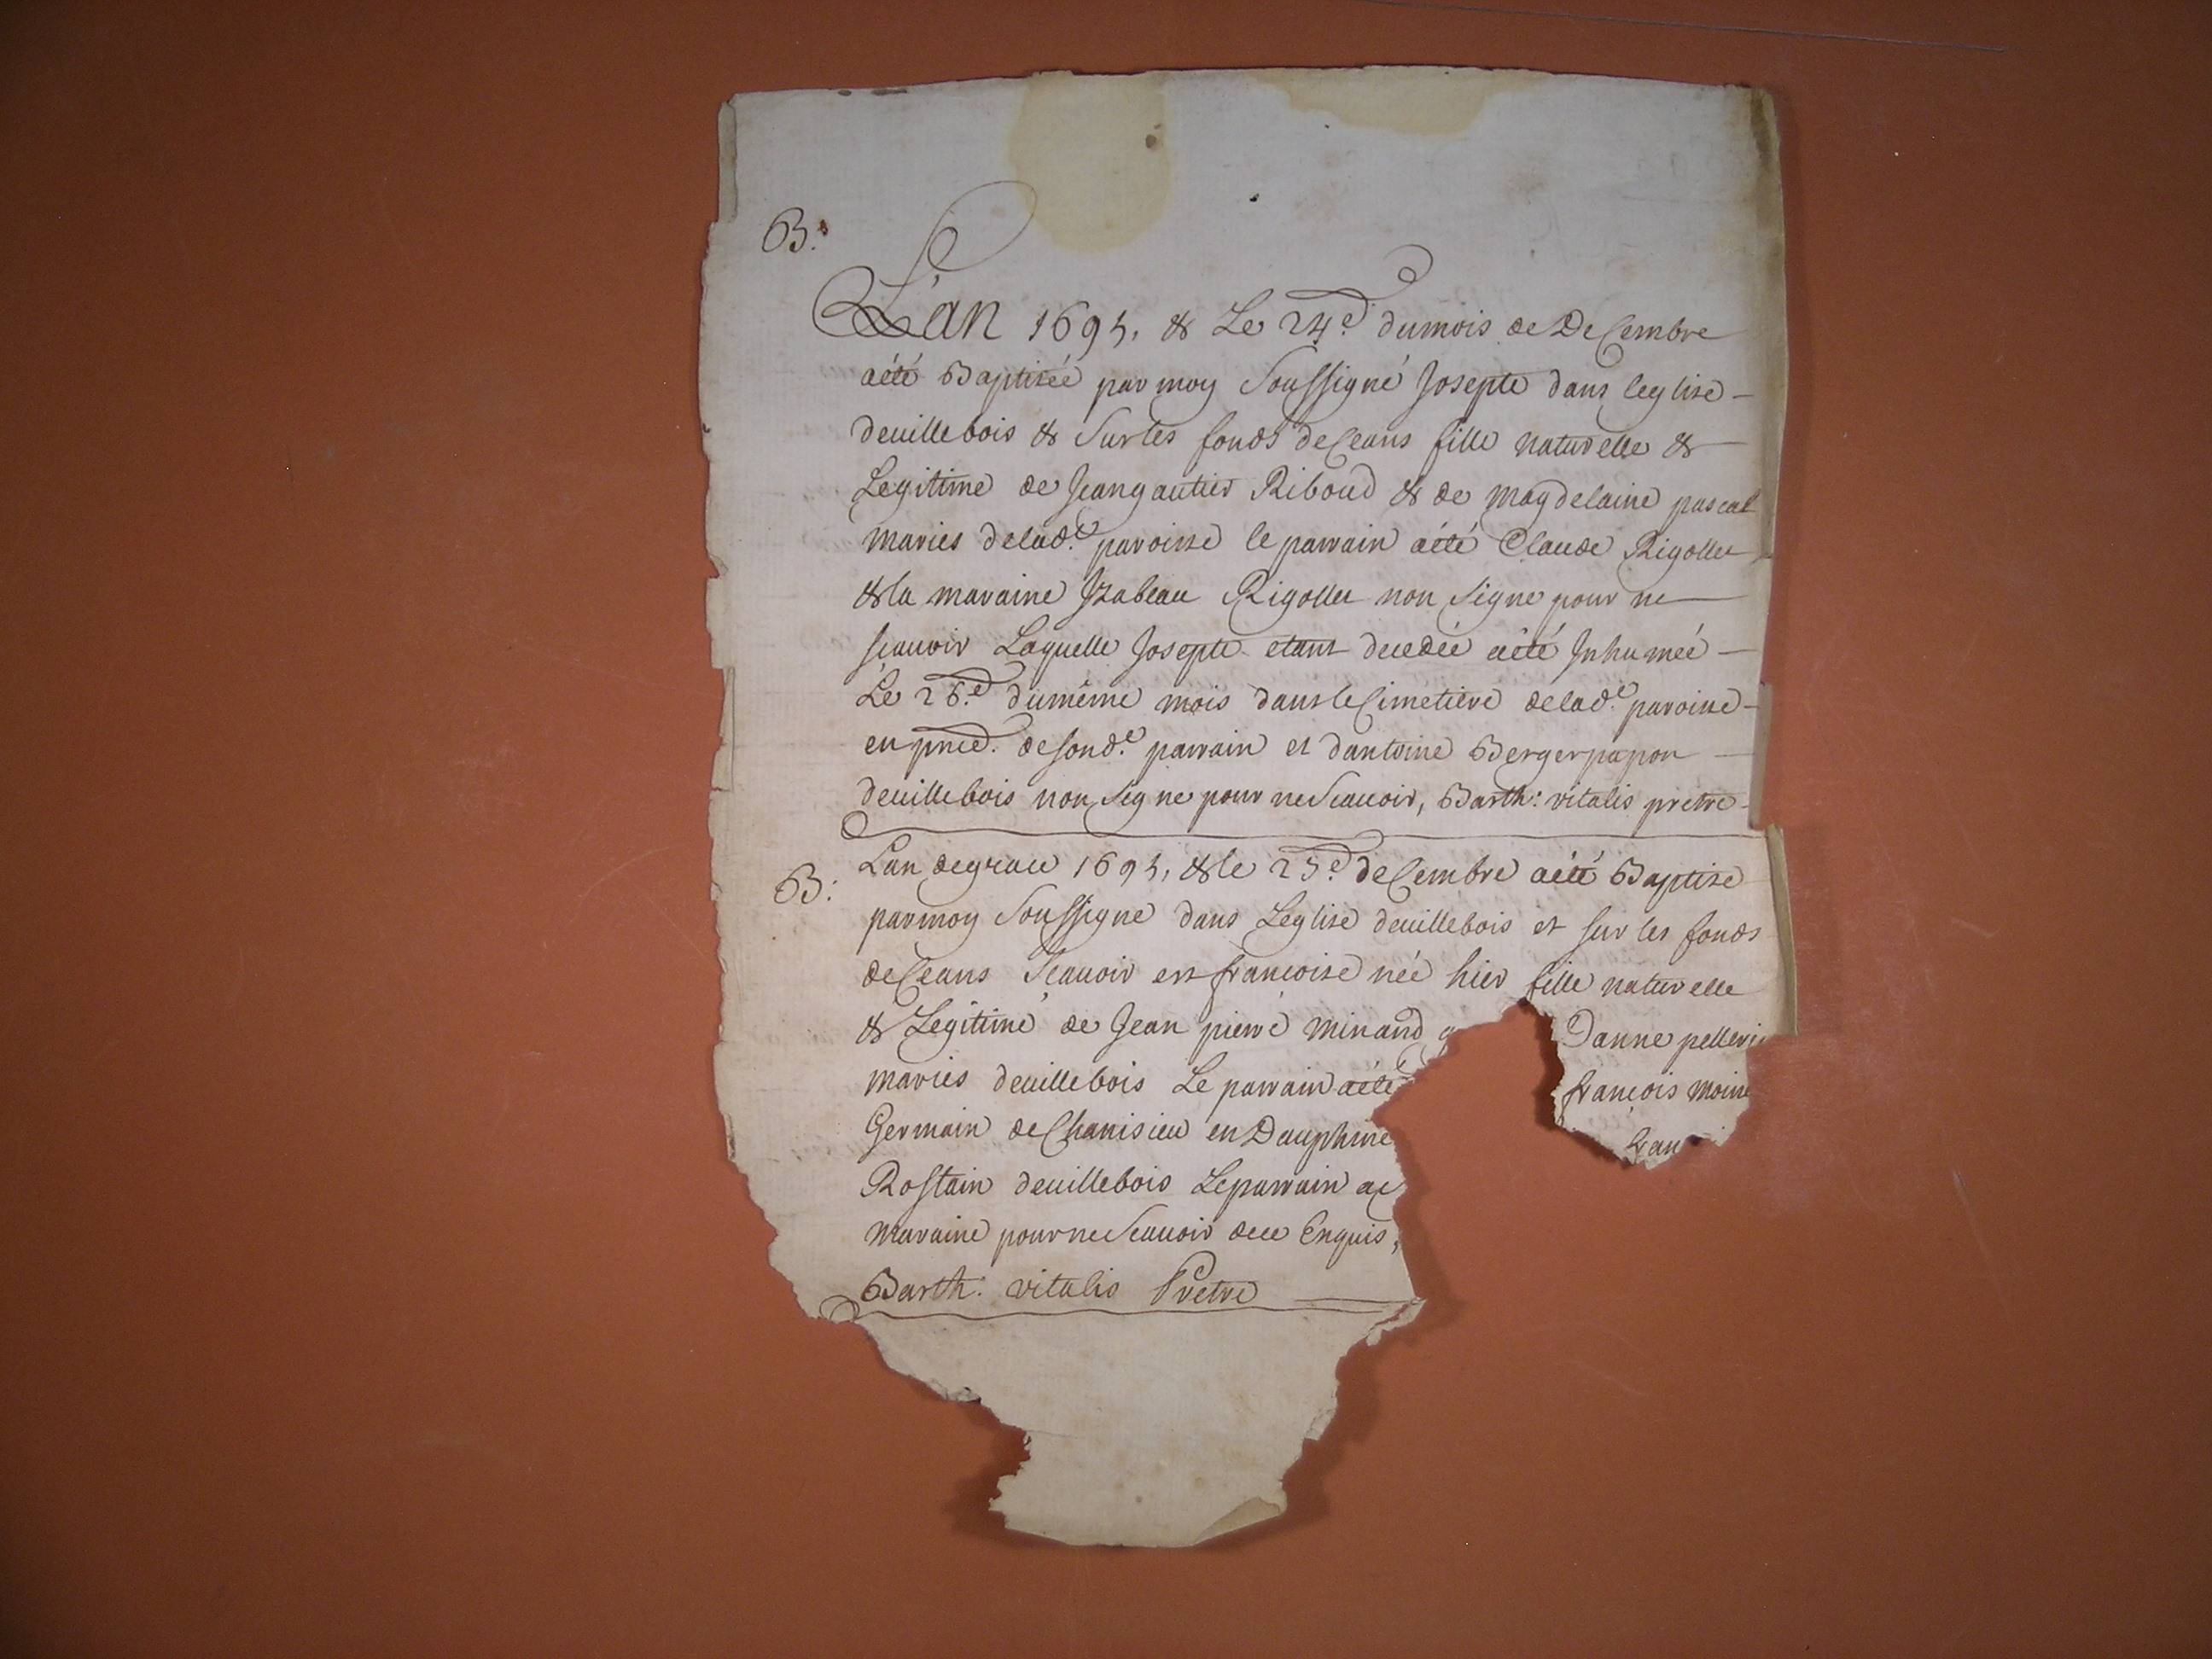 B.
L'an 1695, & Le 24e. dumois de Decembre
aété Baptizée par moy Soussigné Josepte dans leglise –
deuillebois & Surles fonds deCeans fille naturelle &
Legitime de Jeangautier Riboud & de magdelaine pascal
maries delade. paroisse le parrain aété Claude Rigollet
&la maraine Izabeau Rigollet non Signe pour ne
scauoir Laquelle Josepte etant decedée aété Inhumée –
Le 26e. dumême mois dansleCimetiere delade. paroisse –
en pnce. desonde. parrain et dantoine Bergerpapon
deuillebois non Signe pour neScauoir, Barth: vitalis pretre
B: Lan degrace 1695, &le 25e. deCembre aété Baptize
parmoy Soussigne dans Leglise deuillebois et sur les fonds
deCeans Scauoir est francoise née hier fille naturelle
& Legitime de Jean pierre minand Danne pelleri
maries deuillebois Le parrain aété françois moine
Germain deChanisieu en Dauphine fran
Rostain deuillebois Leparrain a
maraine pourneScauoir dece Enquis,
Barth: vitalis Pretre